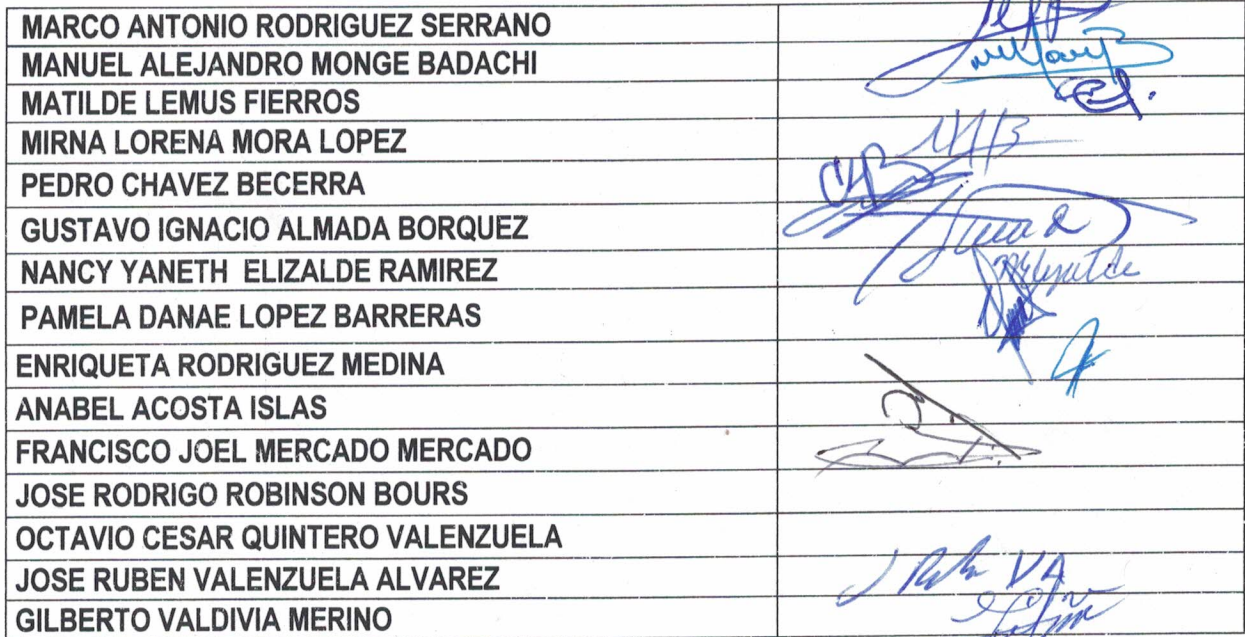 MARCO ANTONIO RODRIGUEZ SERRANO
MANUEL ALEJANDRO MONGE BADACHI
MATILDE LEMUS FIERROS
MIRNA LORENA MORA LOPEZ
PEDRO CHAVEZ BECERRA
GUSTAVO IGNACIO ALMADA BORQUEZ
NANCY YANETH ELIZALDE RAMIREZ
PAMELA DANAE LOPEZ BARRERAS
ENRIQUETA RODRIGUEZ MEDINA
ANABEL ACOSTA ISLAS
FRANCISCO JOEL MERCADO MERCADO
JOSE RODRIGO ROBINSON BOURS
OCTAVIO CESAR QUINTERO VALENZUELA
JOSE RUBEN VALENZUELA ALVAREZ
GILBERTO VALDIVIA MERINO